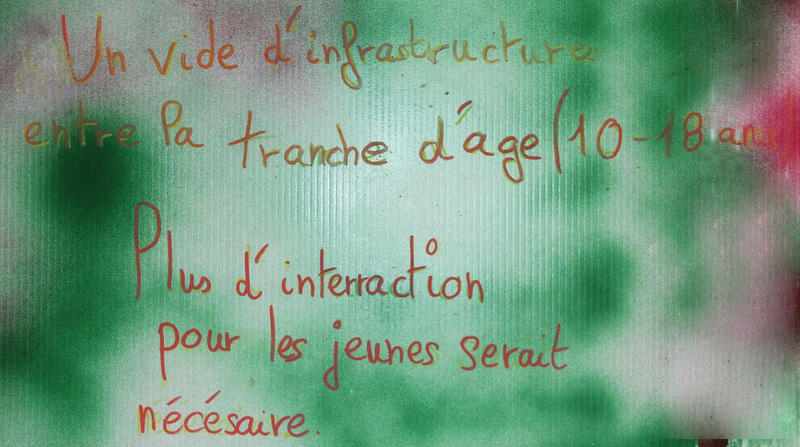 Un vide d'infrastructures
entre la tranche d'age (10-18 ans)
Plus d'interraction
pour les jeunes serait
nécésaire.